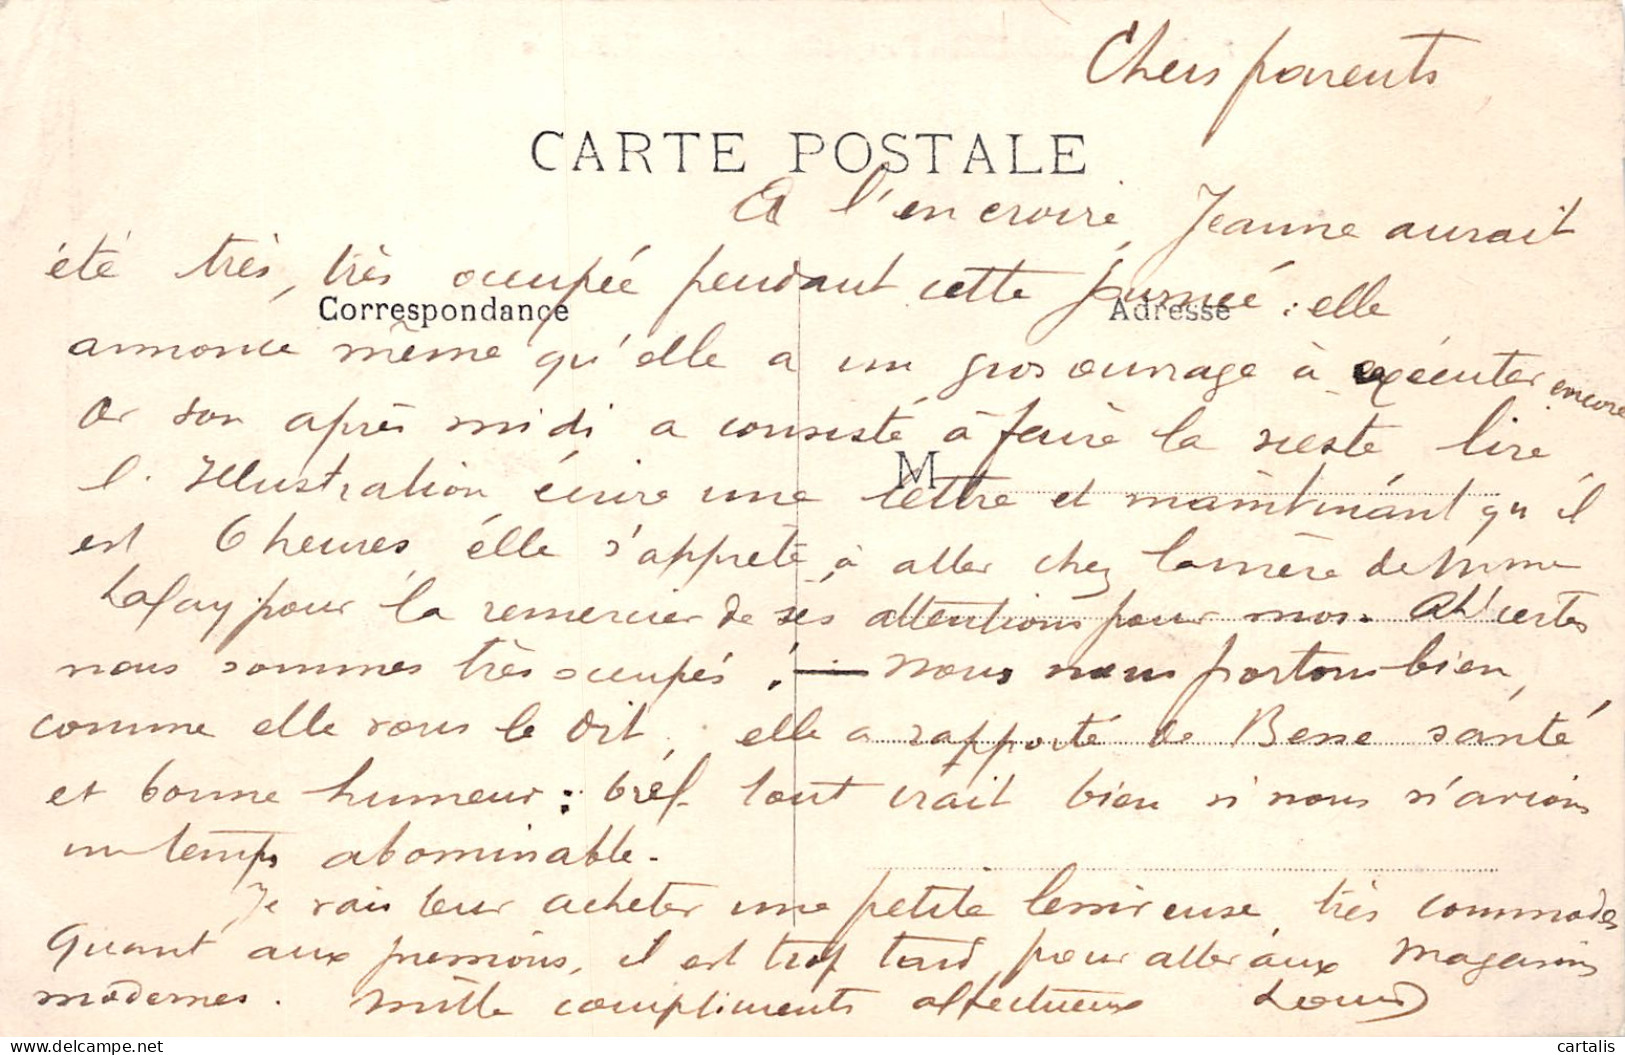 Chers parents
CARTE POSTALE
A l'en croire, Jeanne aurait
été très, très occupée pendant cette journée : elle
Correspondance
Adresse
annonce même qu'elle a un gros ouvrage à exécuter encore
Or son après midi a consisté à faire la sieste lire
M
l'Illustration, écrire une lettre et maintenant qu'il
est 6 heures, elle s'apprête à aller chez la mère de Mme
Lafay pour la remercier de ses attentions pour nos. Ah! certes
nous sommes très occupés ! — Nous nous portons bien,
comme elle vous le dit ; elle a rapporté de Besse santé
et bonne humeur : bref tout irait bien si nous n'avions
un temps abominable.
Je vais leur acheter une petite lessiveuse, très commode
Quant aux pressions, il est trop tard pour aller aux Magasins
modernes. Mille compliments affectueux Louis
cartalis
delcampe.net